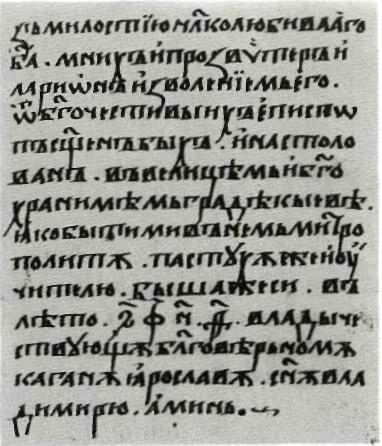 зъ милостїю чл҃колюбивааго
б҃а. мнихъ и прозвѵтеръ и
ларїѡнъ изволенїемь его.
ѿ б҃гочестивыихъ епискѡ
пъ сщ҃енъ быхъ. и настоло
ванъ. въ велицѣмь и б҃го
хранимѣмь градѣ кыевѣ.
ꙗко быти ми въ немь ми҃тро
политѫ. пастѹхѫ же и ѹ
чителю. быша же си. въ
лѣто. ҂ѕ҃ ф҃ н҃ ѳ҃. владыче
ствѹющѫ бл҃говѣрьномѫ
каганѫ ꙗрославѫ. сн҃ѫ вла
димирю. аминь.